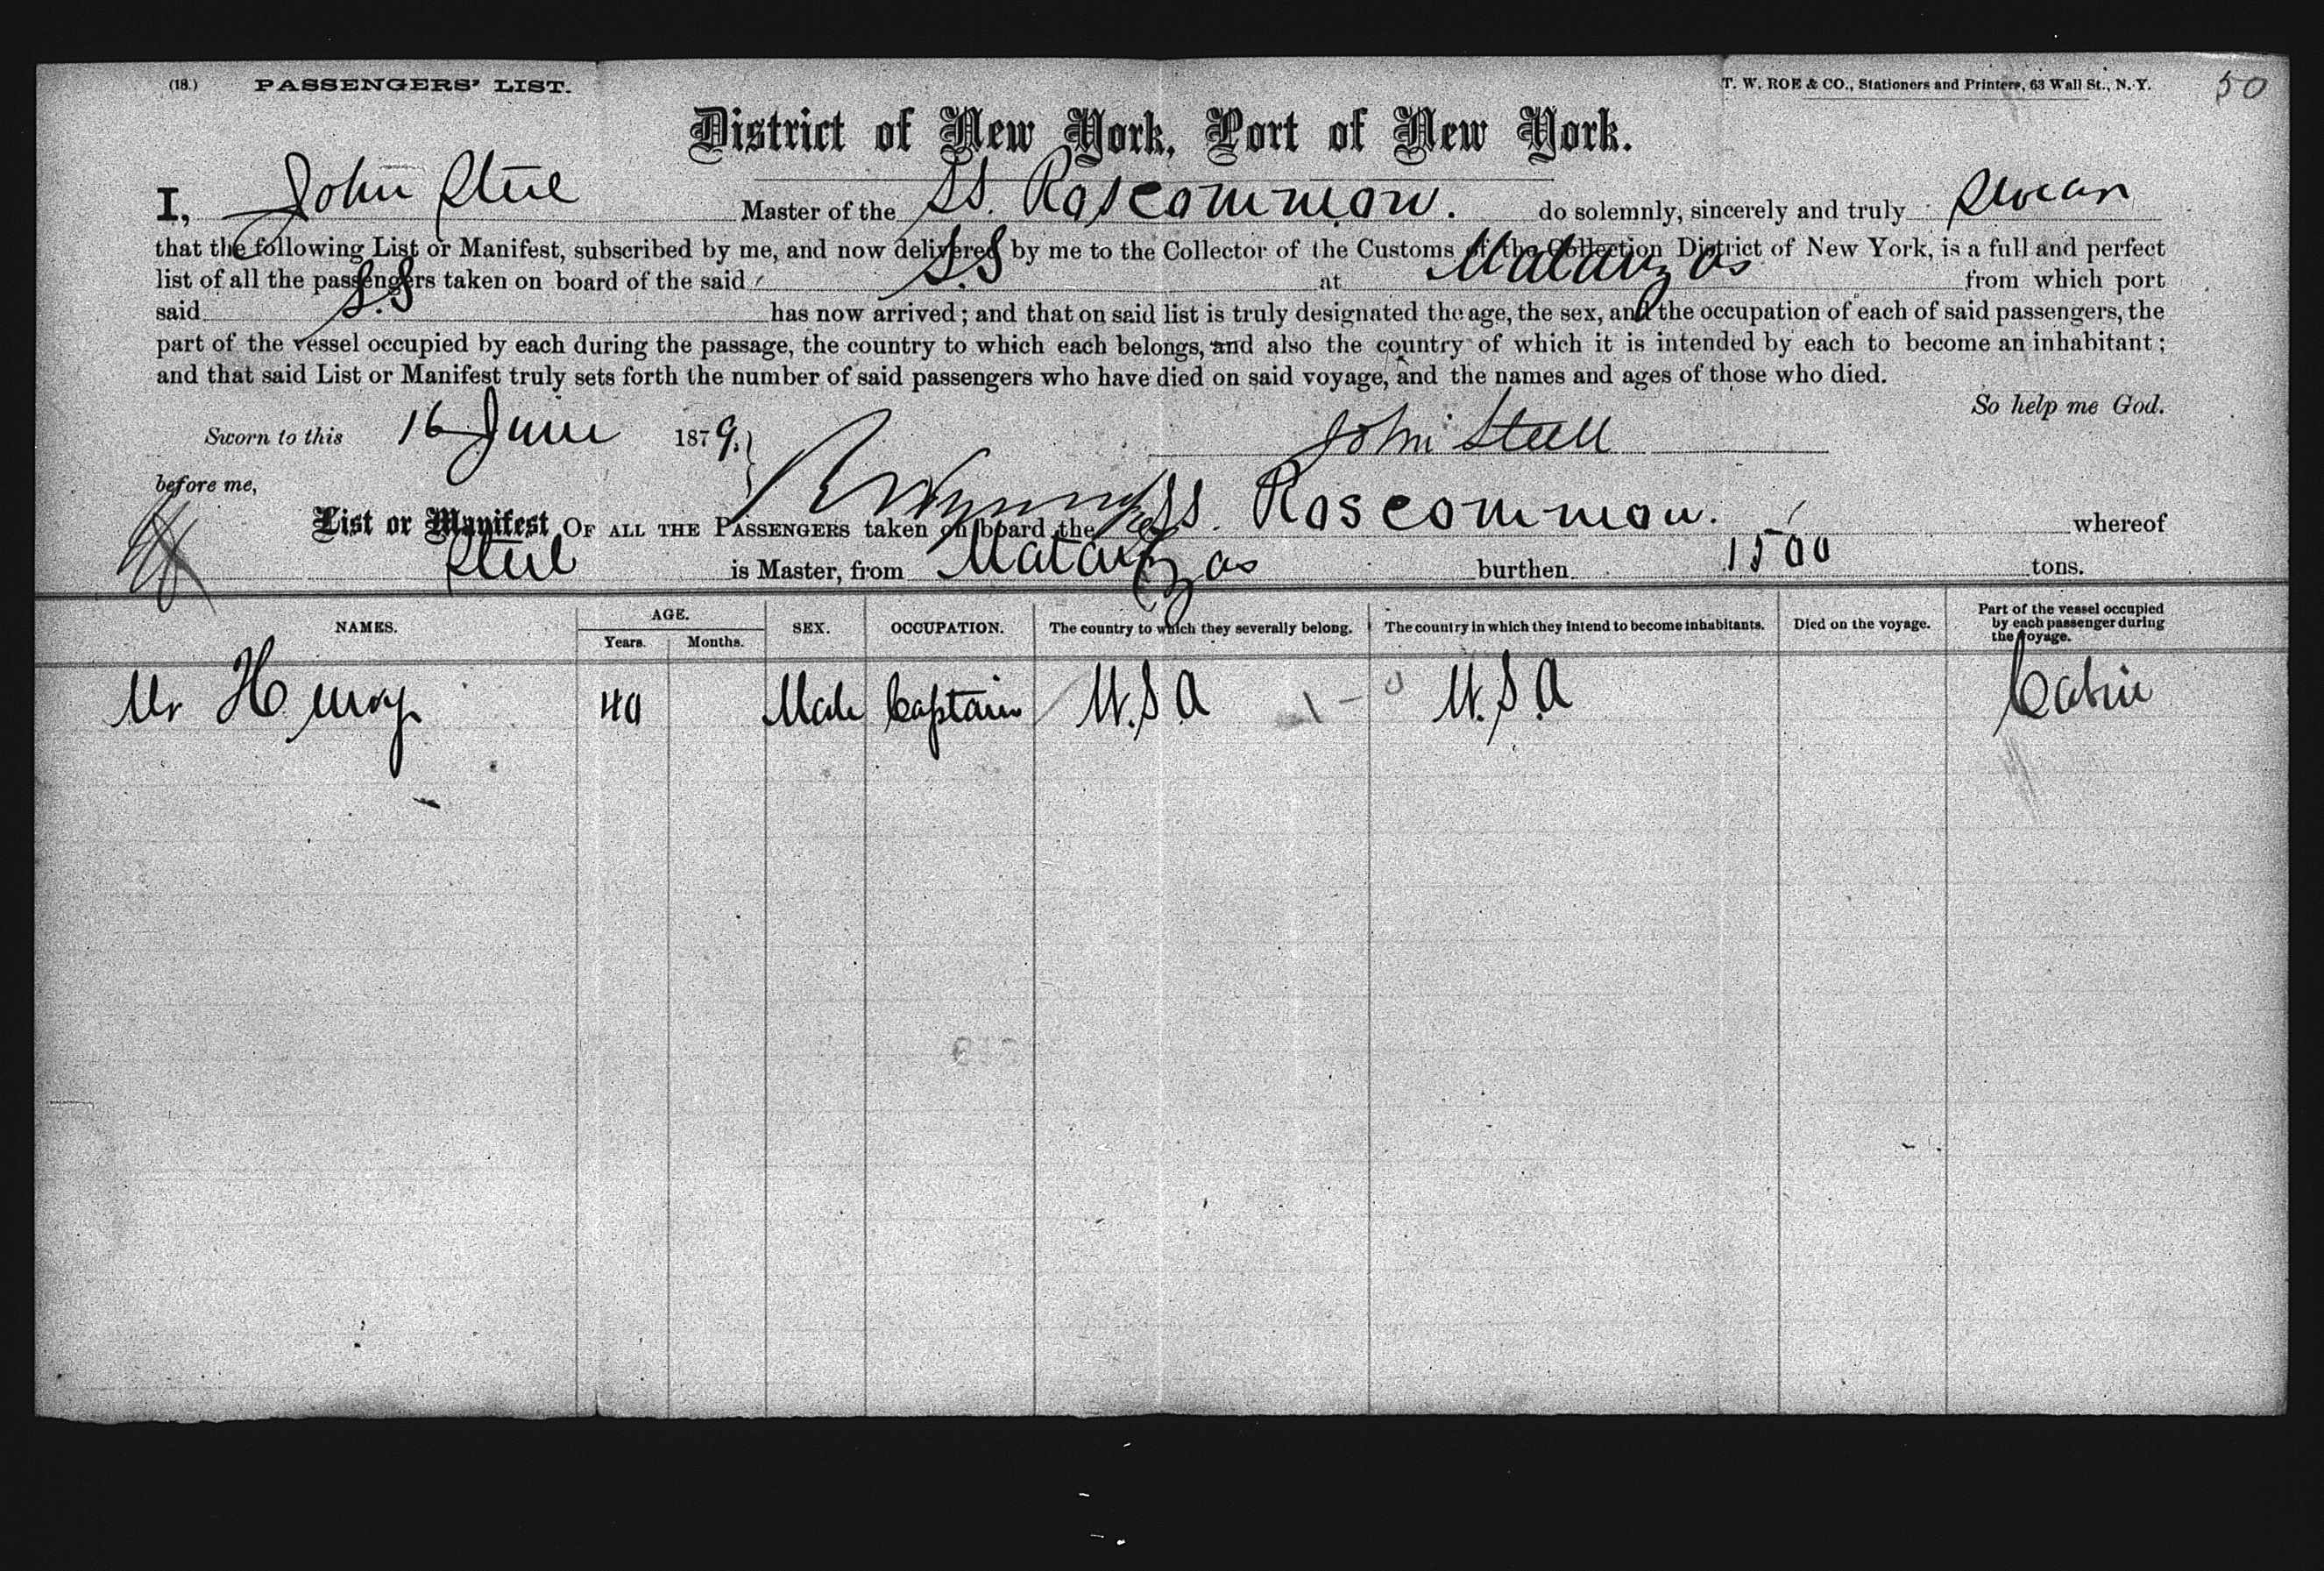 (18.) PASSENGERS' LIST. T. W. ROE & CO., Stationers and Printers, 63 Wall St., N. Y. 50
District of New York, Port of New York.
I, John Steel Master of the SS. Roscommon. do solemnly, sincerely and truly swear
that the following List or Manifest, subscribed by me, and now delivered by me to the Collector of the Customs of the Collection District of New York, is a full and perfect
list of all the passengers taken on board of the said S.S at Matanzas from which port
said S.S has now arrived; and that on said list is truly designated the age, the sex, and the occupation of each of said passengers, the
part of the vessel occupied by each during the passage, the country to which each belongs, and also the country of which it is intended by each to become an inhabitant;
and that said List or Manifest truly sets forth the number of said passengers who have died on said voyage, and the names and ages of those who died.
So help me God.
Sworn to this 16 June 1879. John Steel
before me,
List or Manifest OF ALL THE PASSENGERS taken on board the SS. Roscommon. whereof
Steel is Master, from Matanzas burthen 1500 tons.
NAMES. AGE. Years. Months. SEX. OCCUPATION. The country to which they severally belong. The country in which they intend to become inhabitants. Died on the voyage. Part of the vessel occupied by each passenger during the voyage.
Mr Henry 40 Male Captain U.S.A U.S.A Cabin